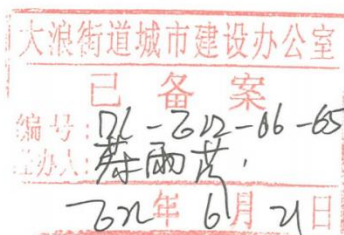 大浪街道城市建设办公室
已备案
编号:DL-2022-06-65
经办人:蔡雨芳
2022年6月21日